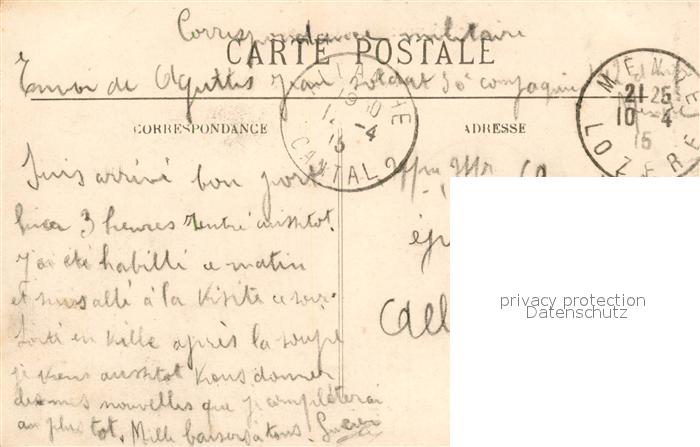 Correspondance militaire
CARTE POSTALE
Envoi de Aguttes Jean soldat 50e compagnie
CORRESPONDANCE
ADRESSE
CANTAL
10 -4
15
MENDE
21 25
10 -4
15
LOZERE
Suis arrivé bon port
hier 3 heures rentré aussitot.
J'ai été habillé ce matin
et suis allé à la visite ce soir
sorti en ville après la soupe
je viens aussitot vous donner
de mes nouvelles que je complèterai
au plus tot. Mille baisers à tous.
Mr
ép
All
privacy protection
Datenschutz